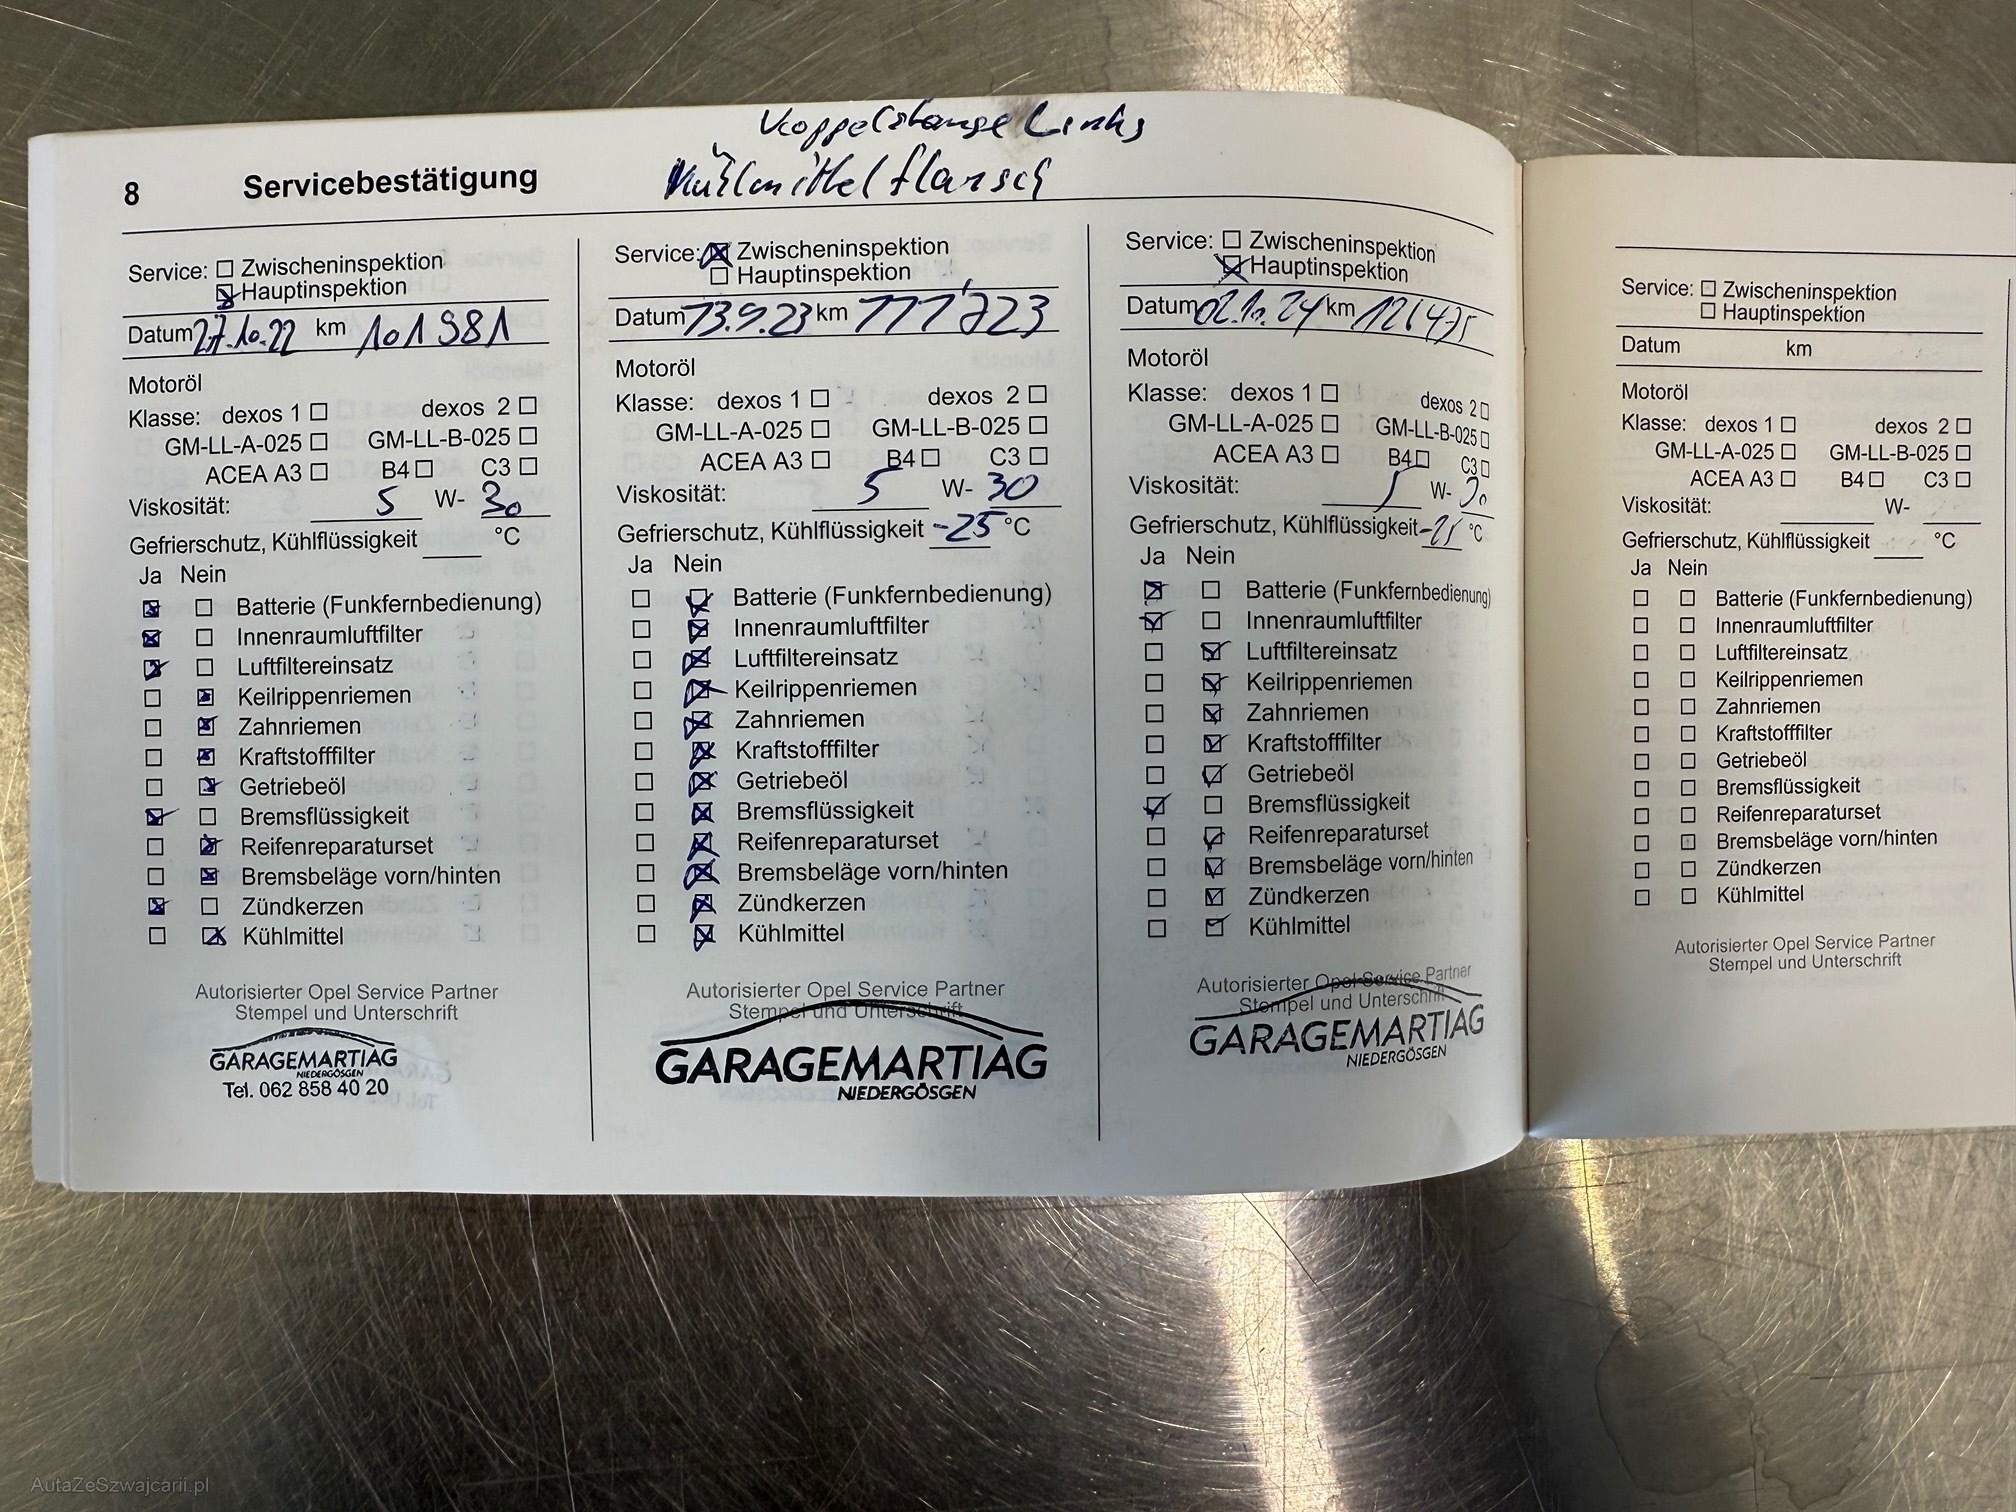 Koppelstange Links
8 Servicebestätigung Kühlmittelflansch
Service: Zwischeninspektion
Hauptinspektion
Datum 27.10.22 km 101981
Motoröl
Klasse: dexos 1 dexos 2
GM-LL-A-025 GM-LL-B-025
ACEA A3 B4 C3
Viskosität: 5 W- 30
Gefrierschutz, Kühlflüssigkeit °C
Ja Nein
Batterie (Funkfernbedienung)
Innenraumluftfilter
Luftfiltereinsatz
Keilrippenriemen
Zahnriemen
Kraftstofffilter
Getriebeöl
Bremsflüssigkeit
Reifenreparaturset
Bremsbeläge vorn/hinten
Zündkerzen
Kühlmittel
Autorisierter Opel Service Partner
Stempel und Unterschrift
GARAGEMARTIAG
NIEDERGÖSGEN
Tel. 062 858 40 20
Service: Zwischeninspektion
Hauptinspektion
Datum 13.9.23 km
Motoröl
Klasse: dexos 1 dexos 2
GM-LL-A-025 GM-LL-B-025
ACEA A3 B4 C3
Viskosität: 5 W- 30
Gefrierschutz, Kühlflüssigkeit -25 °C
Ja Nein
Batterie (Funkfernbedienung)
Innenraumluftfilter
Luftfiltereinsatz
Keilrippenriemen
Zahnriemen
Kraftstofffilter
Getriebeöl
Bremsflüssigkeit
Reifenreparaturset
Bremsbeläge vorn/hinten
Zündkerzen
Kühlmittel
Autorisierter Opel Service Partner
Stempel und Unterschrift
GARAGEMARTIAG
NIEDERGÖSGEN
Service: Zwischeninspektion
Hauptinspektion
Datum 02.10.24 km 126475
Motoröl
Klasse: dexos 1 dexos 2
GM-LL-A-025 GM-LL-B-025
ACEA A3 B4 C3
Viskosität: 5 W- 30
Gefrierschutz, Kühlflüssigkeit -25 °C
Ja Nein
Batterie (Funkfernbedienung)
Innenraumluftfilter
Luftfiltereinsatz
Keilrippenriemen
Zahnriemen
Kraftstofffilter
Getriebeöl
Bremsflüssigkeit
Reifenreparaturset
Bremsbeläge vorn/hinten
Zündkerzen
Kühlmittel
Autorisierter Opel Service Partner
Stempel und Unterschrift
GARAGEMARTIAG
NIEDERGÖSGEN
Service: Zwischeninspektion
Hauptinspektion
Datum km
Motoröl
Klasse: dexos 1 dexos 2
GM-LL-A-025 GM-LL-B-025
ACEA A3 B4 C3
Viskosität: W-
Gefrierschutz, Kühlflüssigkeit °C
Ja Nein
Batterie (Funkfernbedienung)
Innenraumluftfilter
Luftfiltereinsatz
Keilrippenriemen
Zahnriemen
Kraftstofffilter
Getriebeöl
Bremsflüssigkeit
Reifenreparaturset
Bremsbeläge vorn/hinten
Zündkerzen
Kühlmittel
Autorisierter Opel Service Partner
Stempel und Unterschrift
AutaZeSzwajcarii.pl